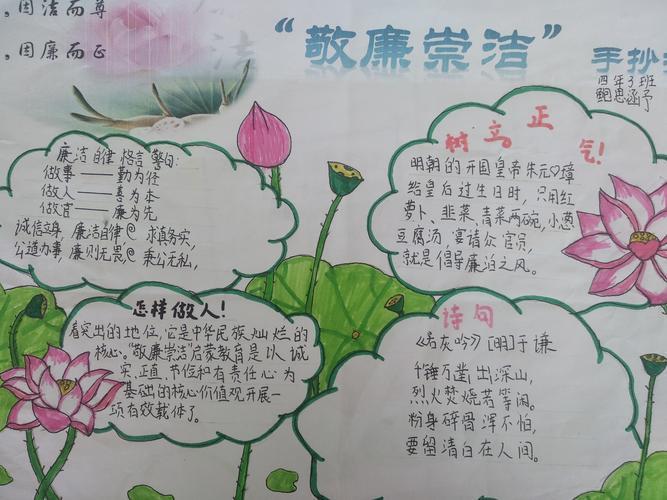 因洁而尊
，因廉而正
“敬廉崇洁”
手抄
四年3班
廉洁自律格言警句：
做事——勤为径
做人——善为本
做官——廉为先
诚信立身，廉洁自律@求真务实，
公道办事，廉则无畏@秉公无私，
树立正
气！
明朝的开国皇帝朱元璋
给皇后过生日时，只用红
萝卜、韭菜，青菜两碗，小葱
豆腐汤，宴请众官员，
就是倡导廉洁之风。
怎样做人！
着突出的地位，它是中华民族灿烂的
核心。“敬廉崇洁”启蒙教育是以诚
实、正直、节俭和有责任心为
基础的核心价值观开展一
项有效载体了。
诗句
《石灰吟》[明]于谦
千锤万凿出深山，
烈火焚烧若等闲。
粉身碎骨浑不怕，
要留清白在人间。